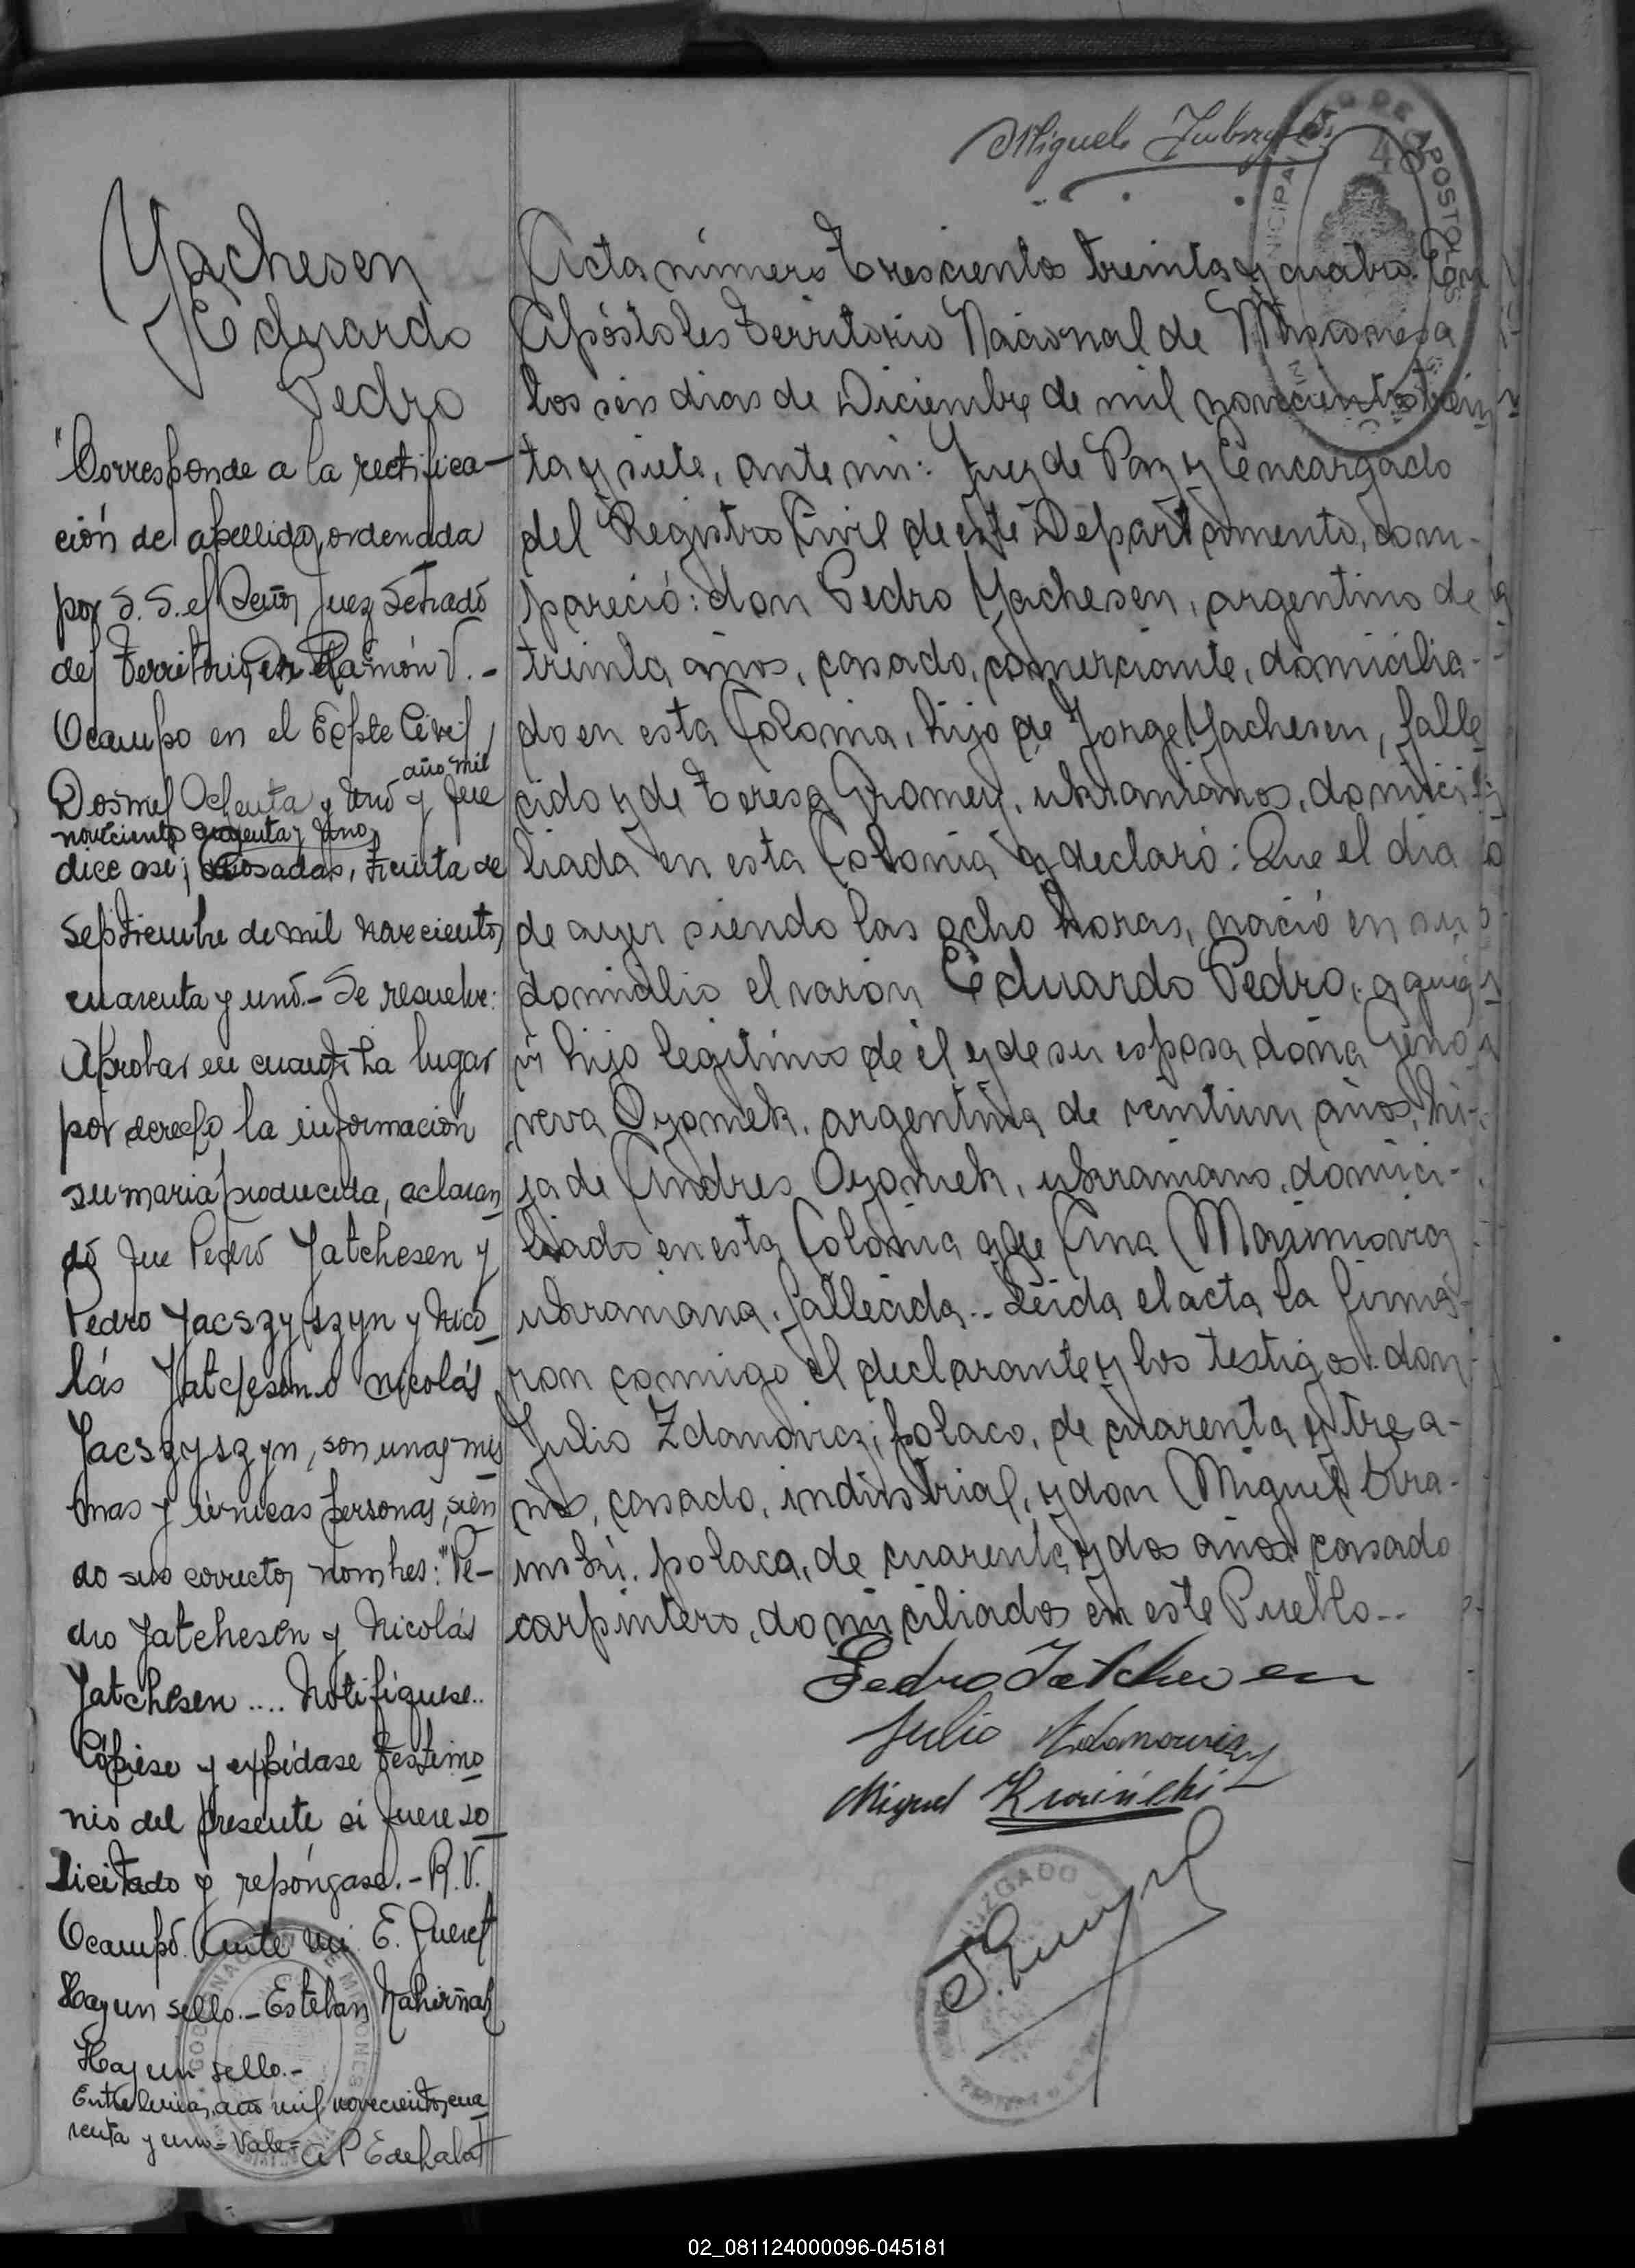 Miguel
48
MUNICIPALIDAD DE APOSTOLES
Yachesen
Eduardo
Pedro
"Corresponde a la rectifica-
ción del apellido, ordenada
por S. S. el Señor Juez Letrado
del Territorio, Dr Ramón V. -
Ocampo en el Expte Civil
Dosmil Ochenta y Uno y año mil
novecientos cuarenta y Uno que
dice así; Posadas, treinta de
septiembre de mil novecientos
cuarenta y uno.- Se resuelve:
Aprobar en cuanto ha lugar
por derecho la información
sumaria producida, aclaran
do que Pedro Yatchesen y
Pedro Jacszyszyn y Nico
lás Yatchesen o Nicolás
Jacszyszyn, son unas mis
mas y únicas personas, sien
do sus correctos nombres: "Pe-
dro Yatchesen y Nicolás
Yatchesen .... Notifíquese..
Cópiese y expídase testimo
nio del presente si fuere so
licitado y repóngase.- R. V.
Ocampo. Ante mi. E. Gueret
Hay un sello.- Esteban
Hay un sello.-
Entre lineas, año mil novecientos cua
renta y uno = Vale =
Acta número trescientos treinta y cuatro. En
Apóstoles Territorio Nacional de Misiones a
los seis dias de Diciembre de mil novecientos trein
ta y siete, ante mi: Juez de Paz y Encargado
del Registro Civil de este Departamento, com-
pareció: don Pedro Yachesen, argentino de
treinta años, casado, comerciante, domicilia-
do en esta Colonia, hijo de Jorge Yachesen, falle
cido y de Teresa, ukranianos, domici
liada en esta Colonia y declaró: Que el dia
de ayer siendo las ocho horas, nació en su
domicilio el varon Eduardo Pedro, a quien
es hijo legitimo de él y de su esposa doña Geno
veva Oyomek, argentina de veintiun años, hi-
ja de Andres Oyomek, ukraniano, domici-
liado en esta Colonia y de Ana Maximovicz
ukraniana, fallecida.. Leida el acta la firma-
ron conmigo el declarante y los testigos: don
Julio Zdanovicz, polaco, de cuarenta y tre a-
ños, casado, industrial, y don Miguel
polaco, de cuarenta y dos años casado
carpintero, domiciliados en este Pueblo..
Pedro Jatchesen
Julio Zdanowicz
Miguel
JUZGADO